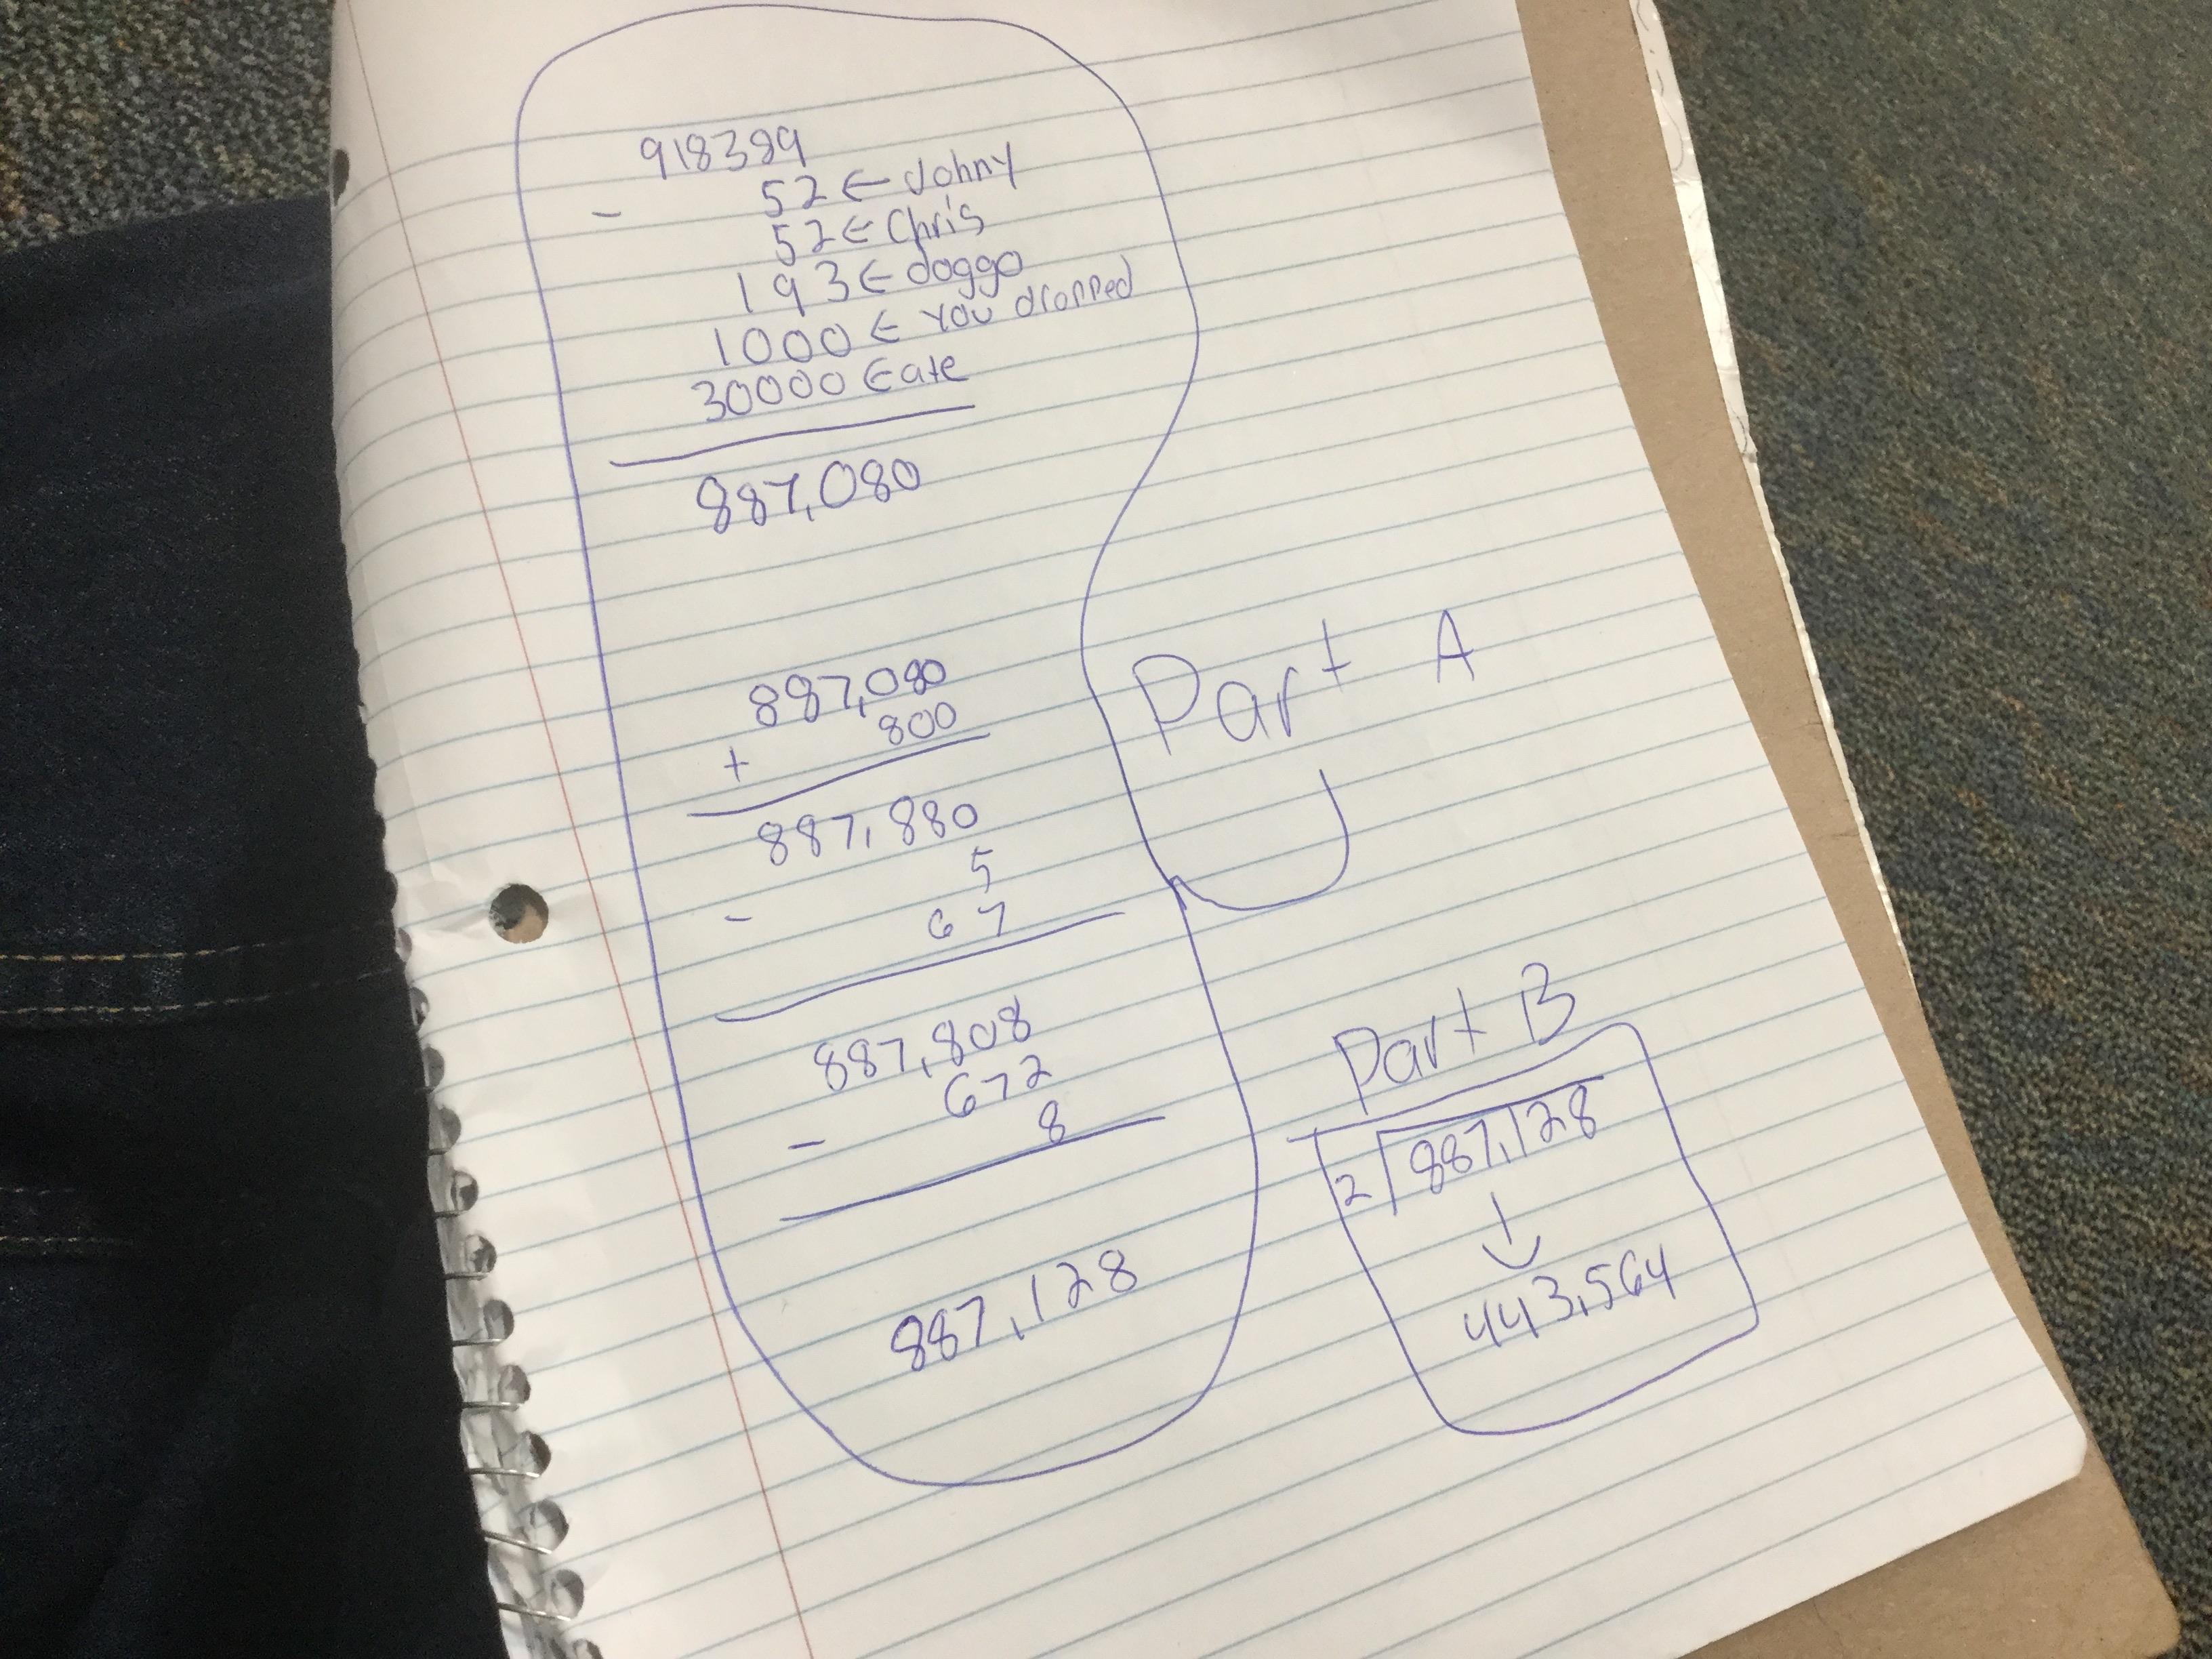 918389
52 ← Johny
-
52 ← Chris
193 ← doggo
1000 ← You dropped
30000 ← ate
887,080
887,080
800
+
887,880
5
-
67
887,808
672
-
8
887,128
Part A
Part B
2 887,128
↓
443,564